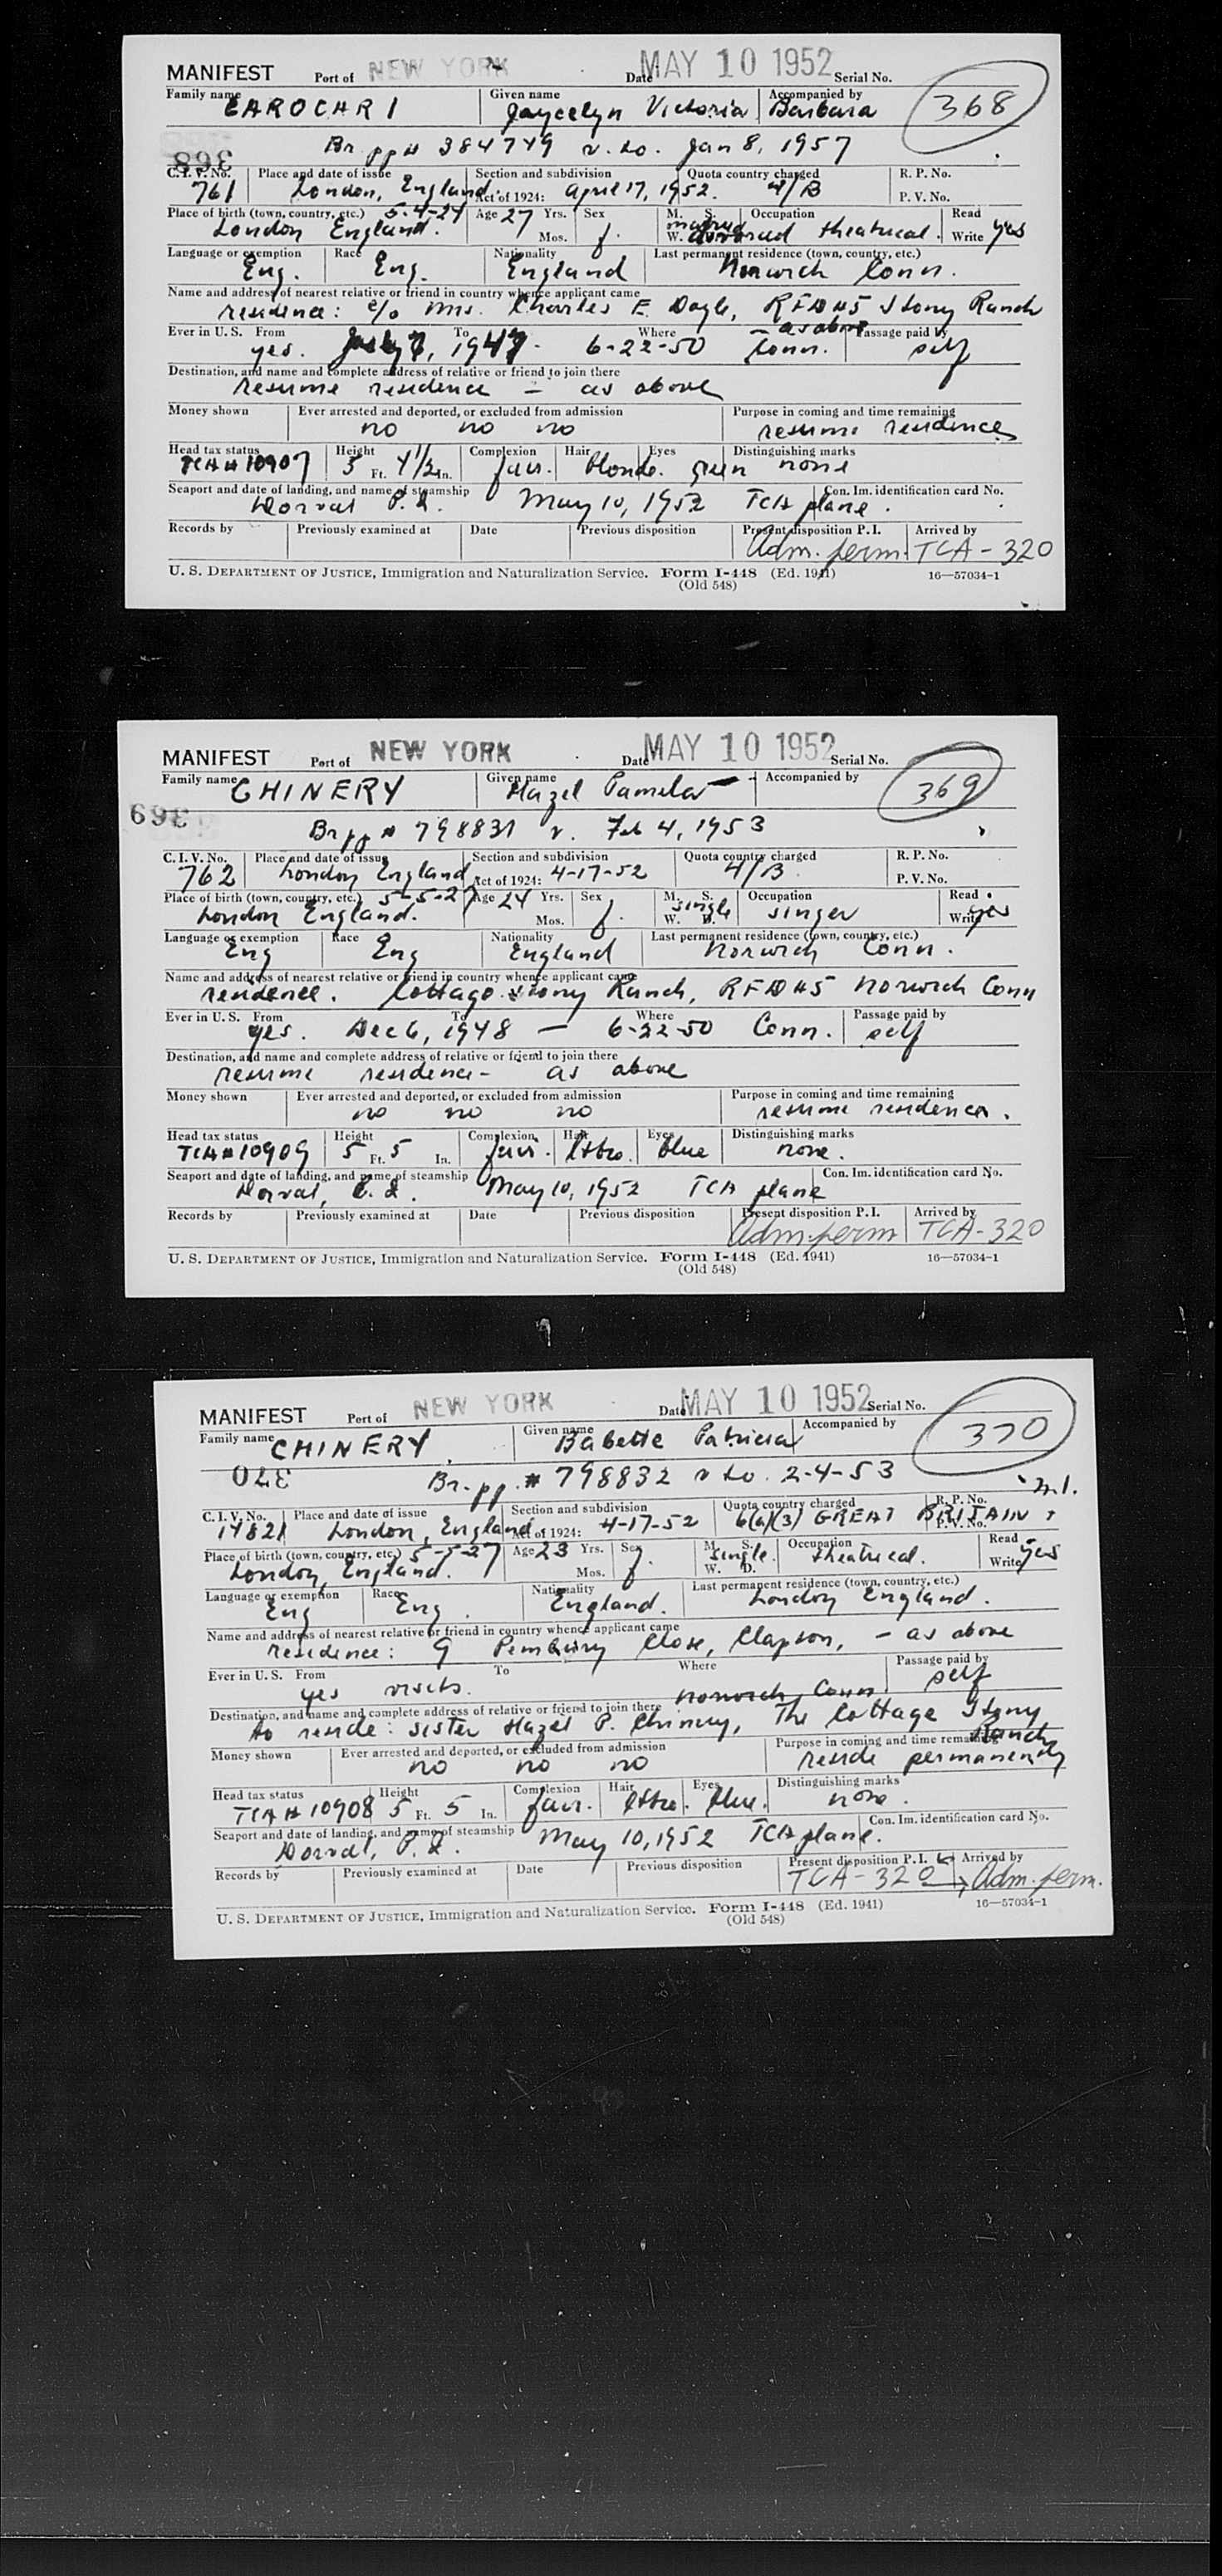 MANIFEST Port of NEW YORK Date MAY 10 1952 Serial No. 368
Family name CAROCARI Given name Jaycelyn Victoria Accompanied by Barbara
Br. pp # 384749 v. to. Jan 8, 1957
368
C. I. V. No. 761 Place and date of issue London, England. Section and subdivision Act of 1924: April 17, 1952. Quota country charged 4/B R. P. No. P. V. No.
Place of birth (town, country, etc.) 5-4-24 London England. Age 27 Yrs. Mos. Sex f. M. S. W. married divorced Occupation theatrical. Read Write yes
Language or exemption Eng. Race Eng. Nationality England Last permanent residence (town, country, etc.) Norwich Conn.
Name and address of nearest relative or friend in country whence applicant came
residence: c/o Mrs. Charles E. Doyle, RFD #5 Stony Ranch
as above
Ever in U. S. From To Where Passage paid by
yes. July 7, 1947 - 6-22-50 Conn. self
Destination, and name and complete address of relative or friend to join there
resume residence - as above
Money shown Ever arrested and deported, or excluded from admission Purpose in coming and time remaining
no no no resume residence
Head tax status TCA # 10907 Height 5 Ft. 4 1/2 In. Complexion fair. Hair blonde. Eyes green Distinguishing marks none
Seaport and date of landing, and name of steamship Con. Im. identification card No.
Dorval P.Q. May 10, 1952 TCA plane.
Records by Previously examined at Date Previous disposition Present disposition P. I. Arrived by
Adm. perm. TCA - 320
U. S. DEPARTMENT OF JUSTICE, Immigration and Naturalization Service. Form I-448 (Ed. 1941) 16—57034-1
(Old 548)
MANIFEST Port of NEW YORK Date MAY 10 1952 Serial No. 369
Family name CHINERY Given name Hazel Pamela Accompanied by
369
Br pp # 798831 v. Feb 4, 1953
C. I. V. No. 762 Place and date of issue London England Section and subdivision Act of 1924: 4-17-52 Quota country charged 4/B R. P. No. P. V. No.
Place of birth (town, country, etc.) 5-5-27 London England. Age 24 Yrs. Mos. Sex f. M. S. W. D. single Occupation singer Read Write yes
Language or exemption Eng Race Eng Nationality England Last permanent residence (town, country, etc.) Norwich Conn.
Name and address of nearest relative or friend in country whence applicant came
residence. Cottage Stony Ranch, RFD #5 Norwich Conn
Ever in U. S. From To Where Passage paid by
yes. Dec 6, 1948 — 6-22-50 Conn. self
Destination, and name and complete address of relative or friend to join there
resume residence - as above
Money shown Ever arrested and deported, or excluded from admission Purpose in coming and time remaining
no no no resume residence.
Head tax status TCA # 10909 Height 5 Ft. 5 In. Complexion fair. Hair lt bro. Eyes blue Distinguishing marks none.
Seaport and date of landing, and name of steamship Con. Im. identification card No.
Dorval, P. Q. May 10, 1952 TCA plane
Records by Previously examined at Date Previous disposition Present disposition P. I. Arrived by
Adm. perm TCA - 320
U. S. DEPARTMENT OF JUSTICE, Immigration and Naturalization Service. Form I-448 (Ed. 1941) 16—57034-1
(Old 548)
MANIFEST Port of NEW YORK Date MAY 10 1952 Serial No. 370
Family name CHINERY Given name Babette Patricia Accompanied by
370
Br. pp. # 798832 v to. 2-4-53
C. I. V. No. 14821 Place and date of issue London, England Section and subdivision Act of 1924: 4-17-52 Quota country charged 6(a)(3) GREAT BRITAIN R. P. No. P. V. No.
Place of birth (town, country, etc.) 5-5-27 London, England. Age 23 Yrs. Mos. Sex f. M. S. W. D. single. Occupation theatrical. Read Write yes
Language or exemption Eng Race Eng. Nationality England. Last permanent residence (town, country, etc.) London England.
Name and address of nearest relative or friend in country whence applicant came
residence: 9 Pembury Close, Clapton, - as above
Ever in U. S. From To Where Passage paid by
yes visits. self
Destination, and name and complete address of relative or friend to join there Norwich, Conn.
to reside: sister Hazel P. Chinery, The Cottage Stony Ranch
Money shown Ever arrested and deported, or excluded from admission Purpose in coming and time remaining
no no no reside permanently
Head tax status TCA # 10908 Height 5 Ft. 5 In. Complexion fair. Hair lt bro. Eyes blue. Distinguishing marks none.
Seaport and date of landing, and name of steamship Con. Im. identification card No.
Dorval, P. Q. May 10, 1952 TCA plane.
Records by Previously examined at Date Previous disposition Present disposition P. I. Arrived by
TCA - 320 Adm. perm.
U. S. DEPARTMENT OF JUSTICE, Immigration and Naturalization Service. Form I-448 (Ed. 1941) 16—57034-1
(Old 548)